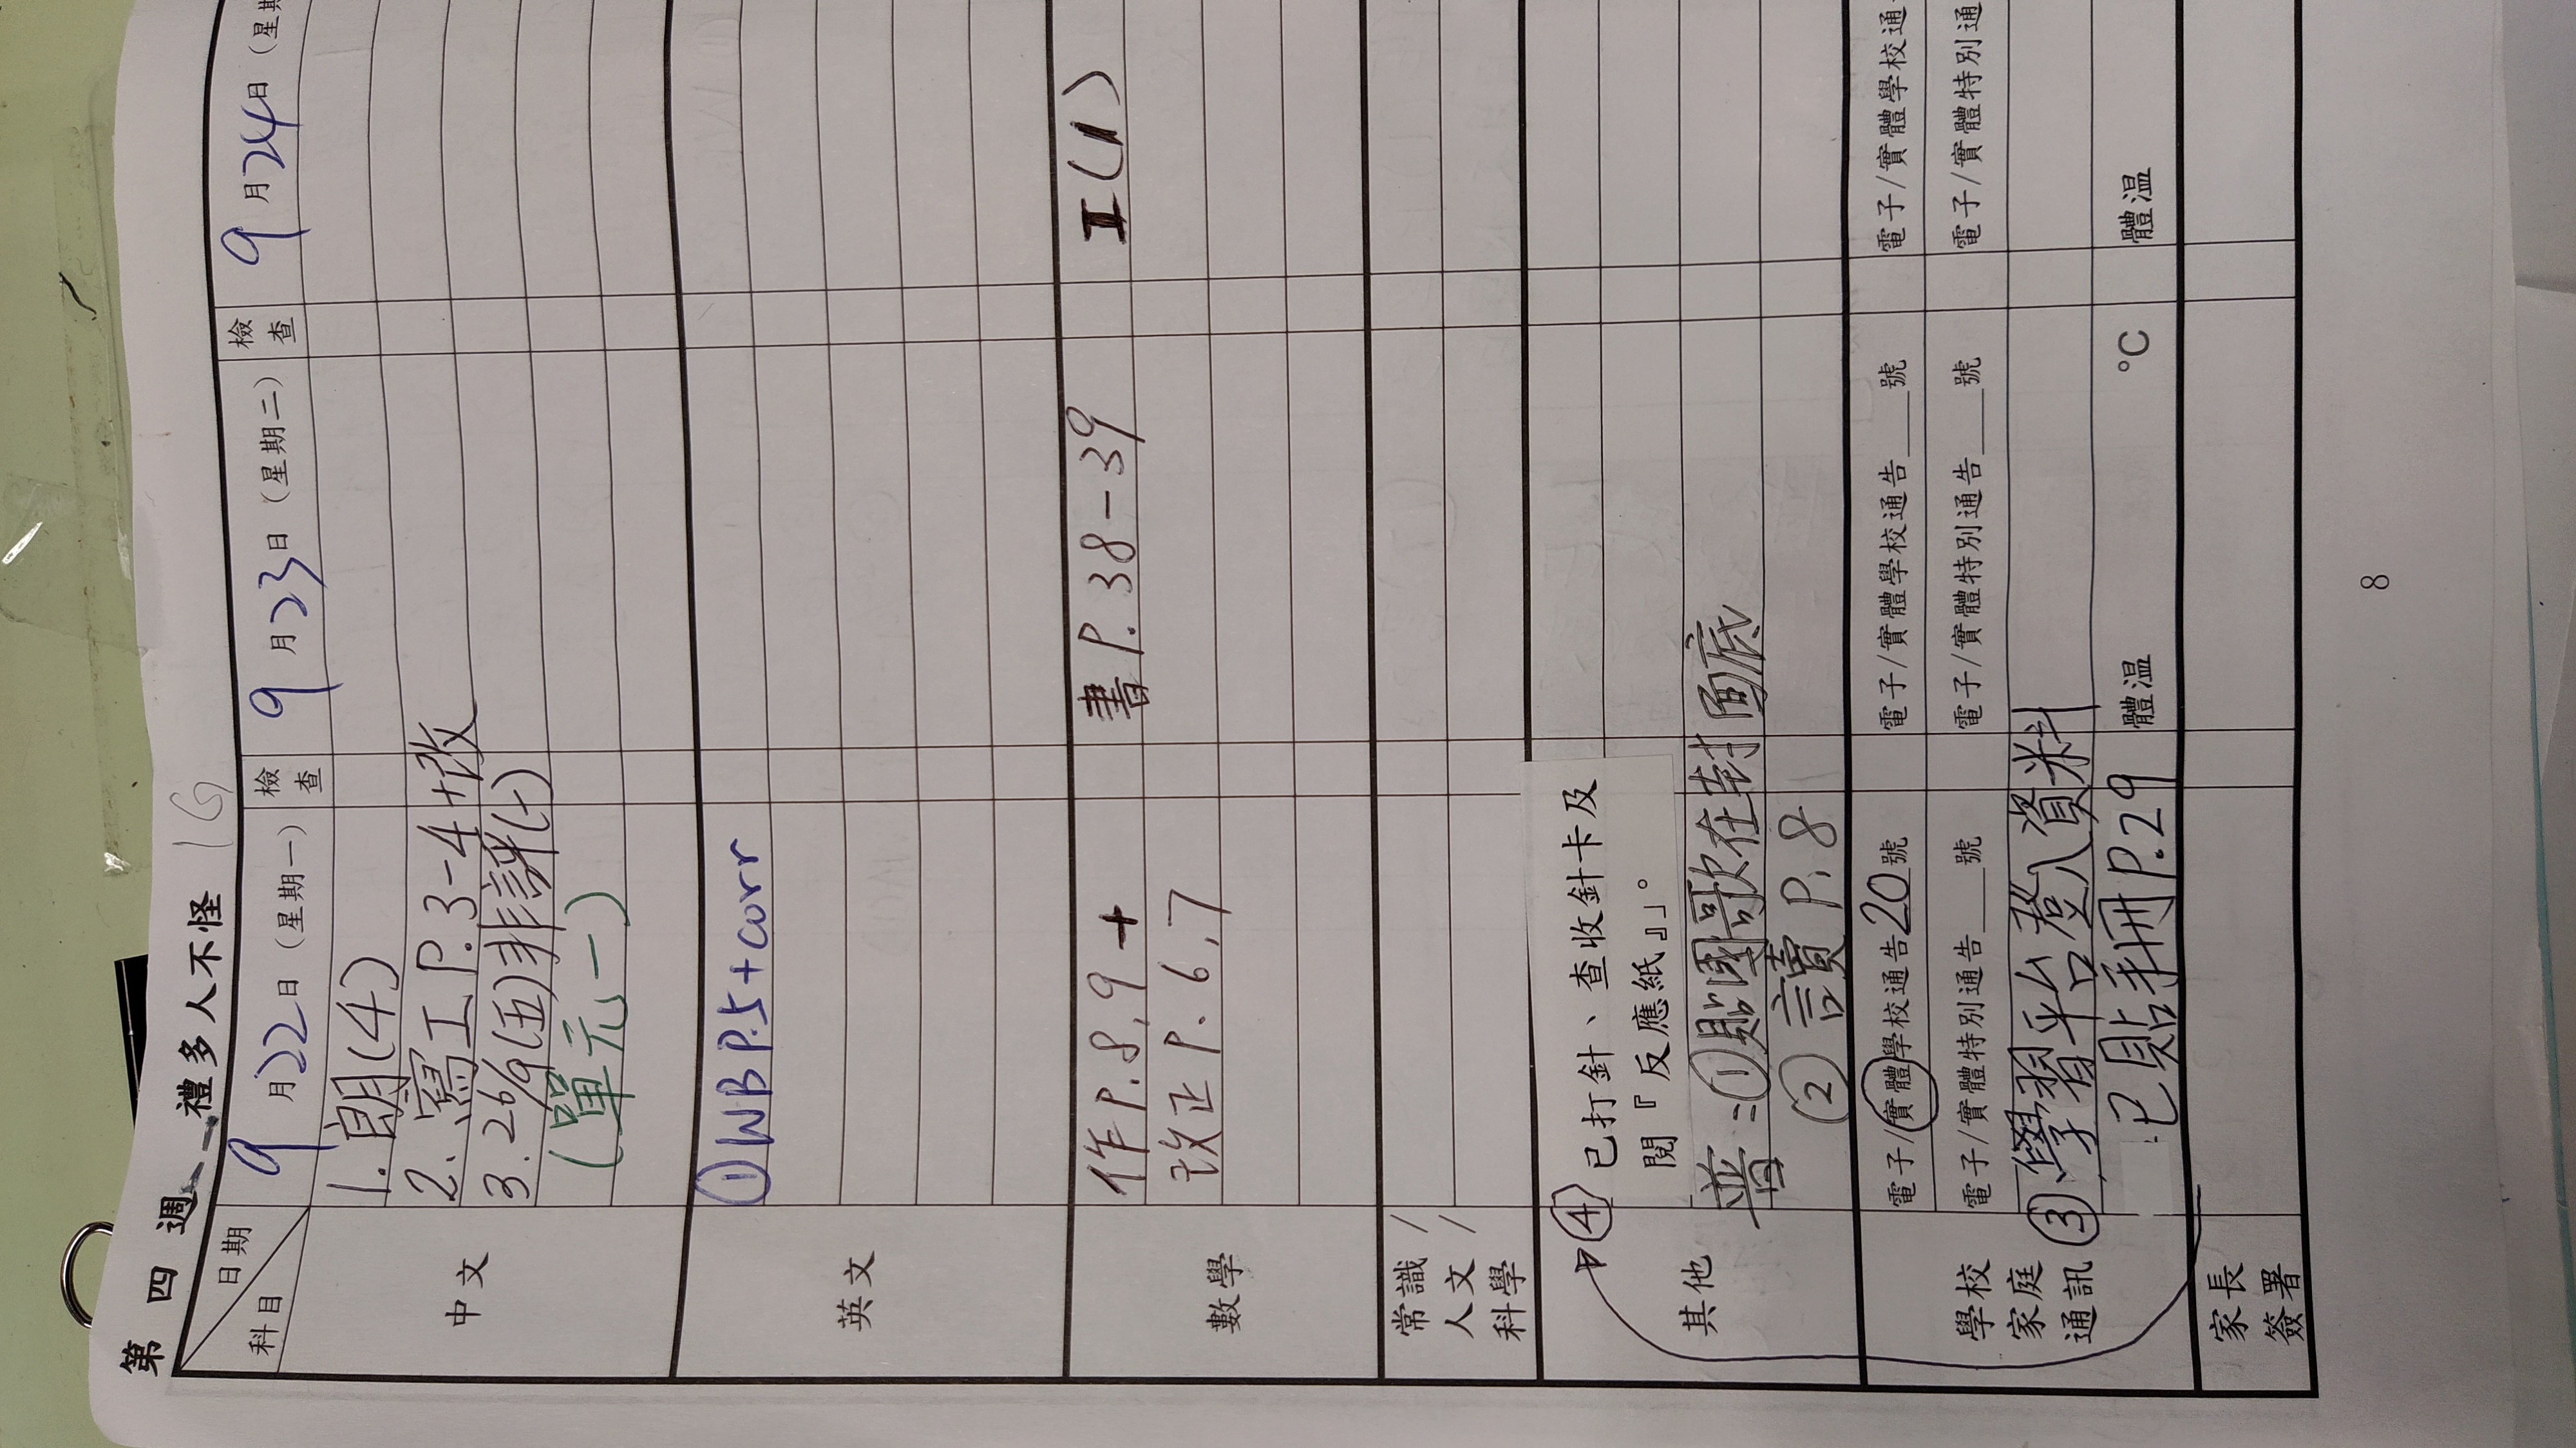 第四週 禮多人不怪 1G
日期
科目
9月22日(星期一)
檢查
9月23日(星期二)
檢查
9月24日(星期
中文
1.朗(4)
2.寫工P.3-4+改
3.26/9(五)非評(一)
(單元一)
英文
①WB P.5+corr
數學
作P.8,9+
改正P.6,7
書P.38-39
工(1)
常識/
人文/
科學
其他
④已打針、查收針卡及
閱『反應紙』」。
普:①貼國歌在封面底
②讀P.8
學校
家庭
通訊
電子/實體學校通告20號
電子/實體特別通告__號
③學習平台登入資料
已貼手冊P.29
電子/實體學校通告__號
電子/實體特別通告__號
體溫 °C
電子/實體學校通
電子/實體特別通
體溫
家長
簽署
8